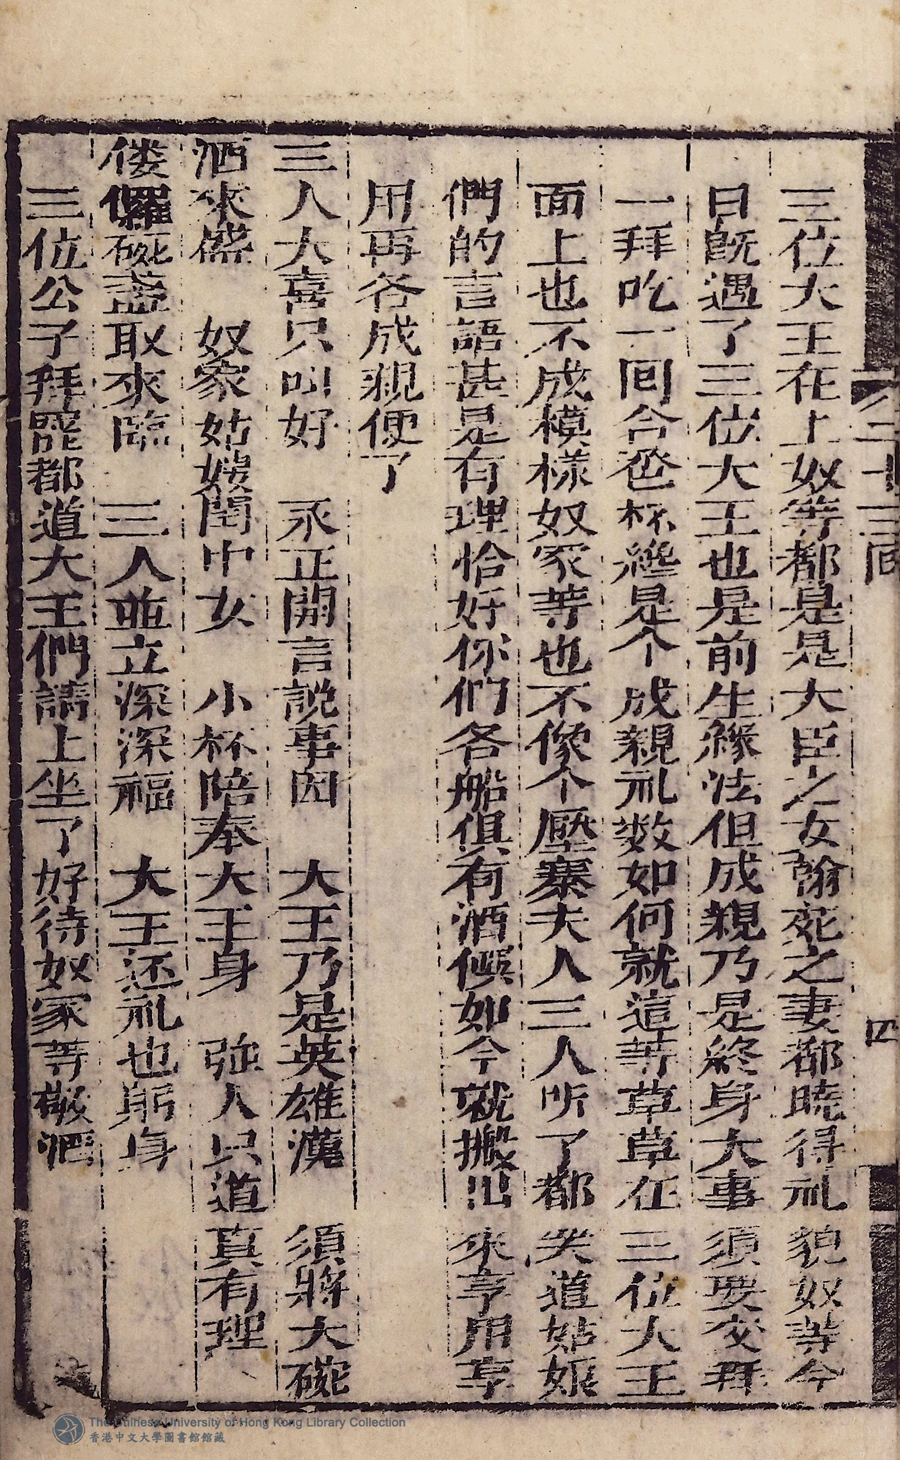 三十三回
四
三位大王在上奴等都是是大臣之女翰苑之妻都曉得礼貌奴等今
日既遇了三位大王也是前生緣法但成親乃是終身大事須要交拜
一拜吃一囘合卺杯纔是个成親礼数如何就這等草草在三位大王
面上也不成模樣奴家等也不像个壓寨夫人三人听了都笑道姑娘
們的言語甚是有理恰好你们各船俱有酒候如今就搬出來享用享
用再各成親便了
三人大喜只叫好 承正開言説事因 大王乃是英雄漢 須將大碗
酒來盛 奴家姑嫂閨中女 小杯陪奉大王身 强人只道真有理
偻儸碗盞取來臨 三人並立深深福 大王还礼也躬身
三位公子拜罷都道大王們請上坐了好待奴家等敬酒
The Chinese University of Hong Kong Library Collection
香港中文大學圖書館館藏